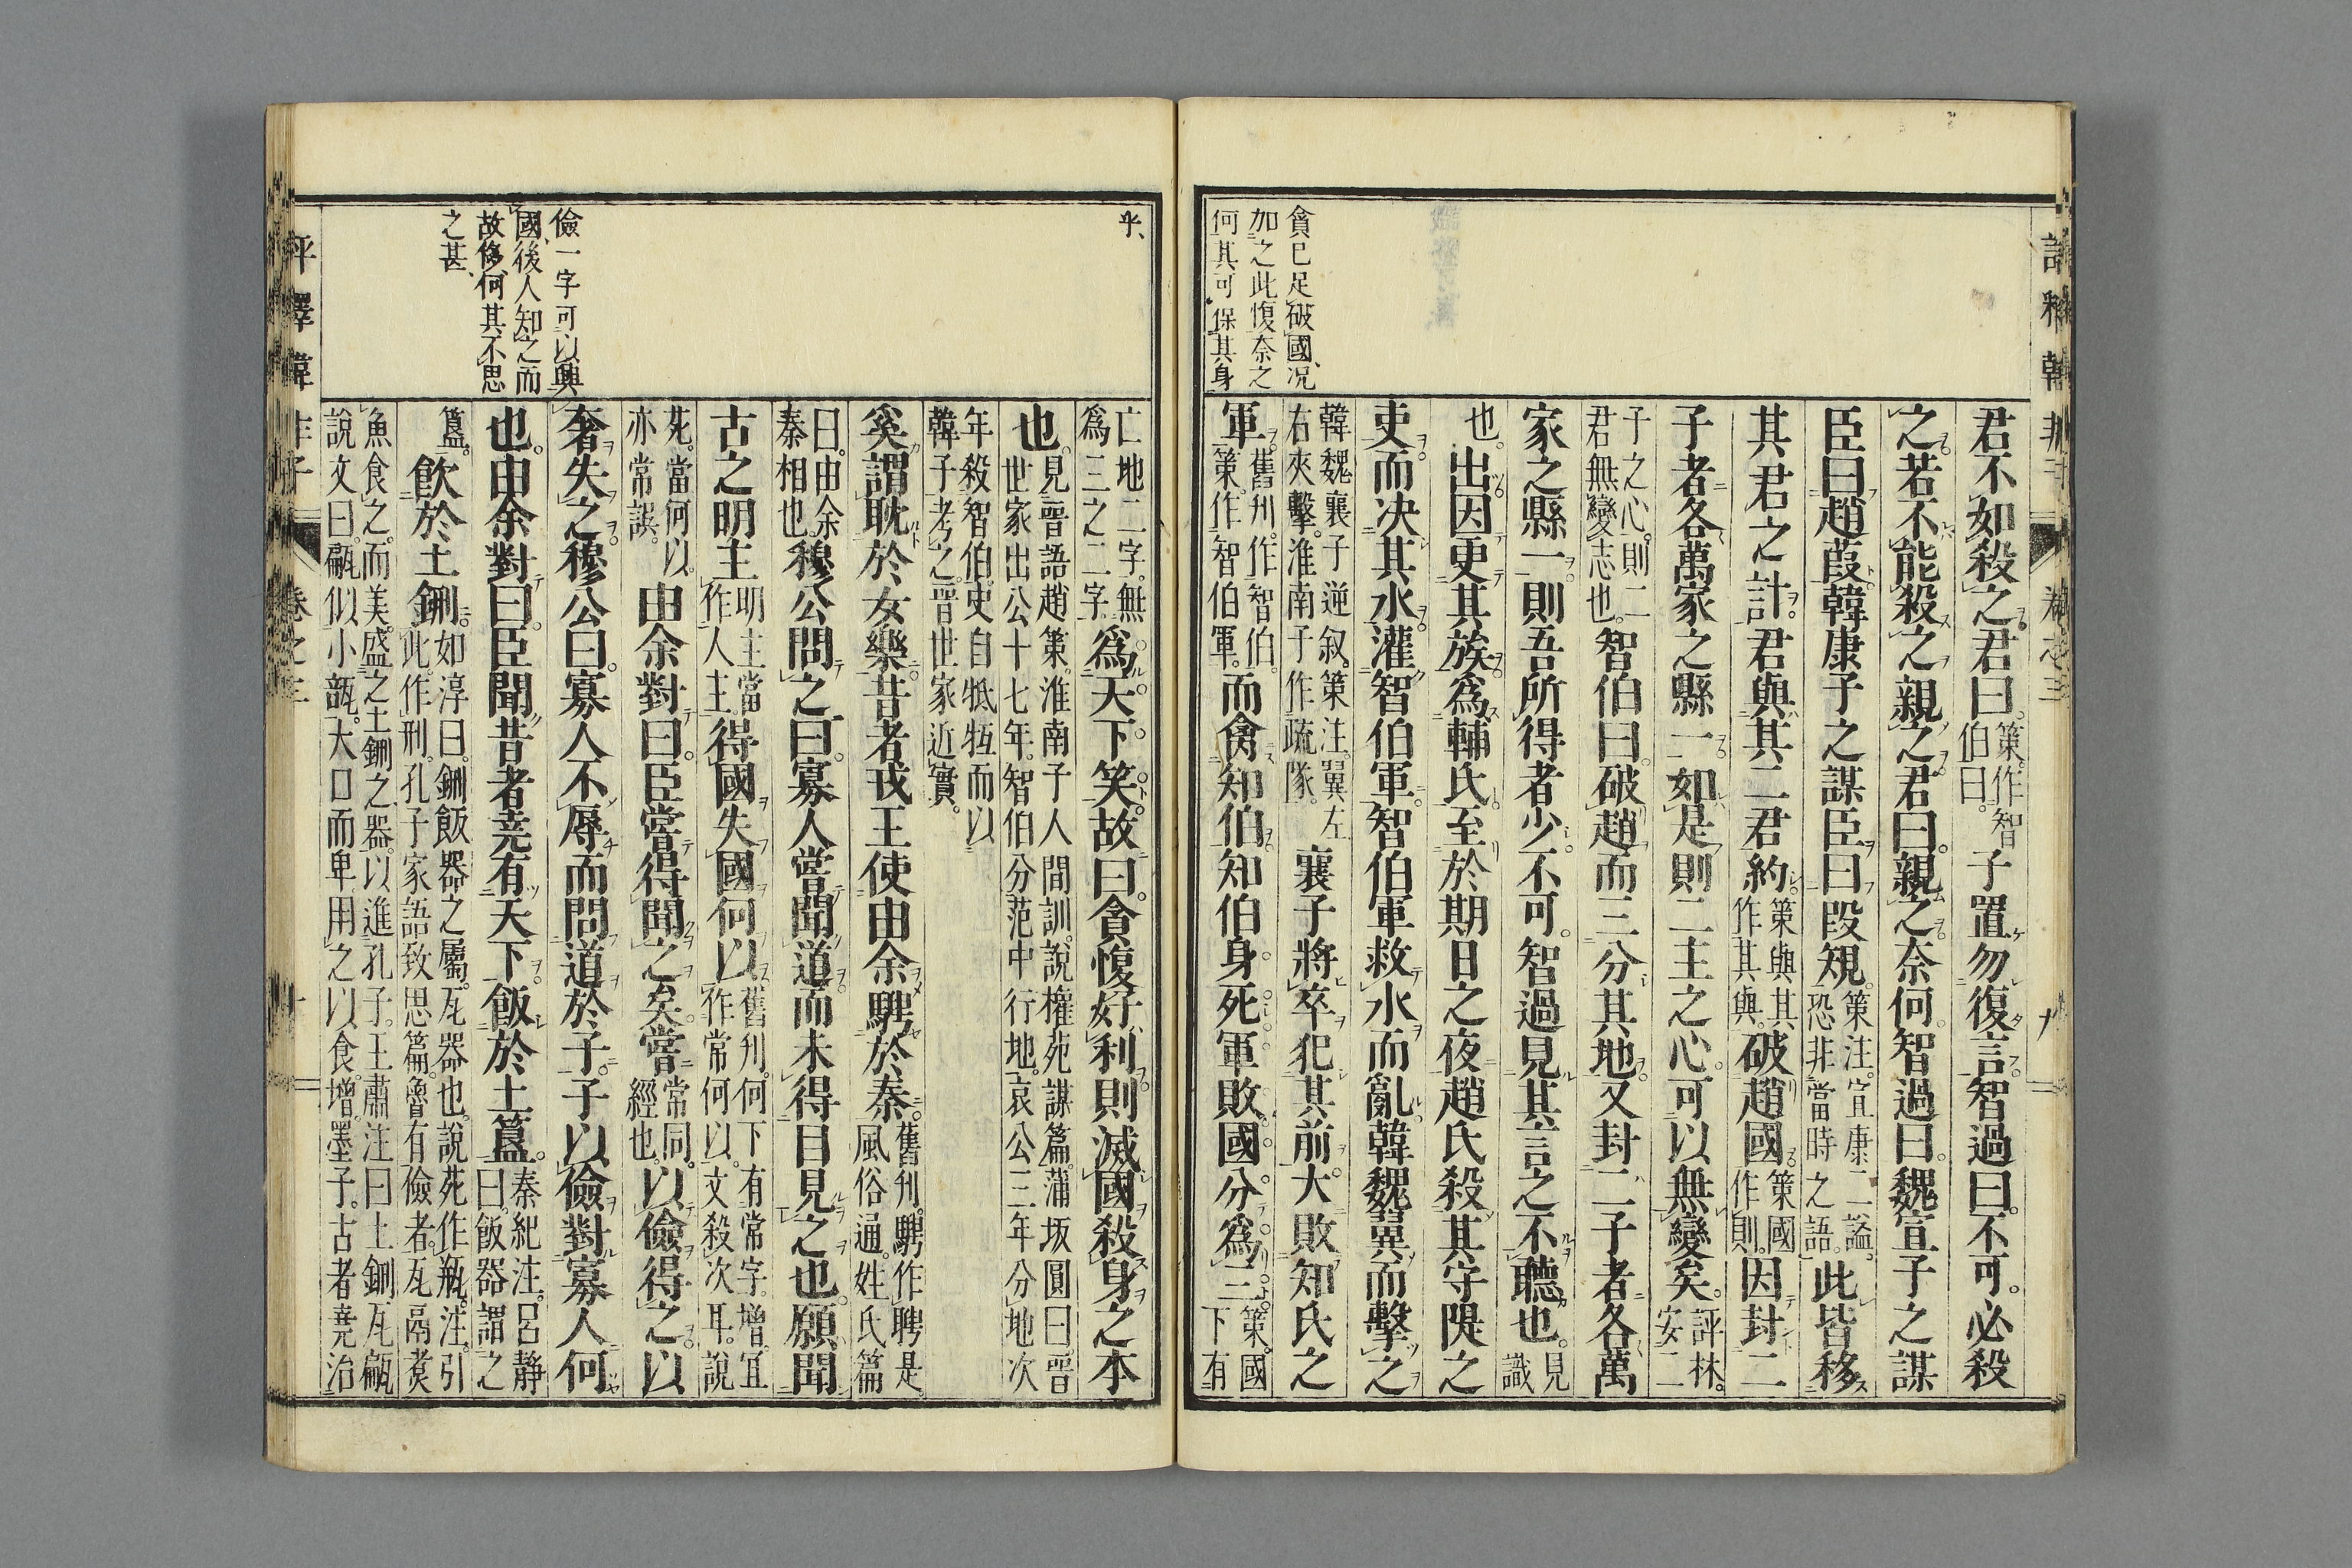 評釋韓非子 卷之三 九
貪已足破國、况
加之此愎奈之
何其可保其身
君不如殺之。君曰。策作智伯曰。子置勿復言智過曰。不可。必殺
之。若不能殺之親之。君曰。親之奈何智過曰。魏宣子之謀
臣曰趙葭韓康子之謀臣曰段規。策注。宜康二諡。恐非當時之語。此皆移
其君之計。君與其二君約。策與其作其與。破趙國。策國作則。因封二
子者各萬家之縣一。如是則二主之心。可以無變矣。評林。安二
子之心。則二君無變志也。智伯曰。破趙而三分其地。又封二子者各萬
家之縣一。則吾所得者少。不可。智過見其言之不聽也。見識
也。出因更其族。爲輔氏。至於期日之夜趙氏殺其守隄之
吏。而决其水。灌智伯軍。智伯軍救水而亂。韓魏翼而擊之
韓魏襄子逆叙。策注。翼左右夾擊。淮南子作疏隊。襄子將卒犯其前。大敗知氏之
軍。舊刋。作智伯。策。作智伯軍。而禽知伯。知伯身死軍敗。國分。爲三。策。國下有
乎、
儉一字可以興
國、後人知之而
故侈、何其不思
之甚、
亡地二字。無爲三之二字。爲天下笑。故曰。貪愎好利則滅國殺身之本
也。見晉語趙策。淮南子人間訓。說權苑謀篇。蒲坂圓曰。晉世家出公十七年。智伯分范中行地。哀公三年分地次
年殺智伯。史自牴牾而以韓子考之。晉世家近實。
奚謂耽於女樂。昔者戎王使由余騁於秦。舊刋。騁作聘是。風俗通。姓氏篇
曰。由余秦相也。穆公問之曰。寡人嘗聞道。而未得目見之也。願聞
古之明主明主當作人主。得國失國何以。舊刋。何下有常字。增。宜作常何以。文殺次耳。說
苑。當何以亦常誤。由余對曰。臣嘗得聞之矣。嘗常同。經也。以儉得之。以
奢失之。穆公曰。寡人不辱而問道於子。子以儉對寡人何
也。由余對曰。臣聞昔者堯有天下。飯於土簋。秦紀注。呂静曰。飯器謂之
簋。飲於土鉶。如淳曰。鉶飯器之屬。瓦器也。說苑作瓶。注。引此作刑。孔子家語致思篇。魯有儉者。瓦鬲煑
魚食之。而美。盛之土鉶之器。以進孔子。王肅注曰土鉶瓦甂說文曰。甂似小瓿。大口而卑。用之以食。增。墨子。古者堯治
評釋韓非子 卷之三 十